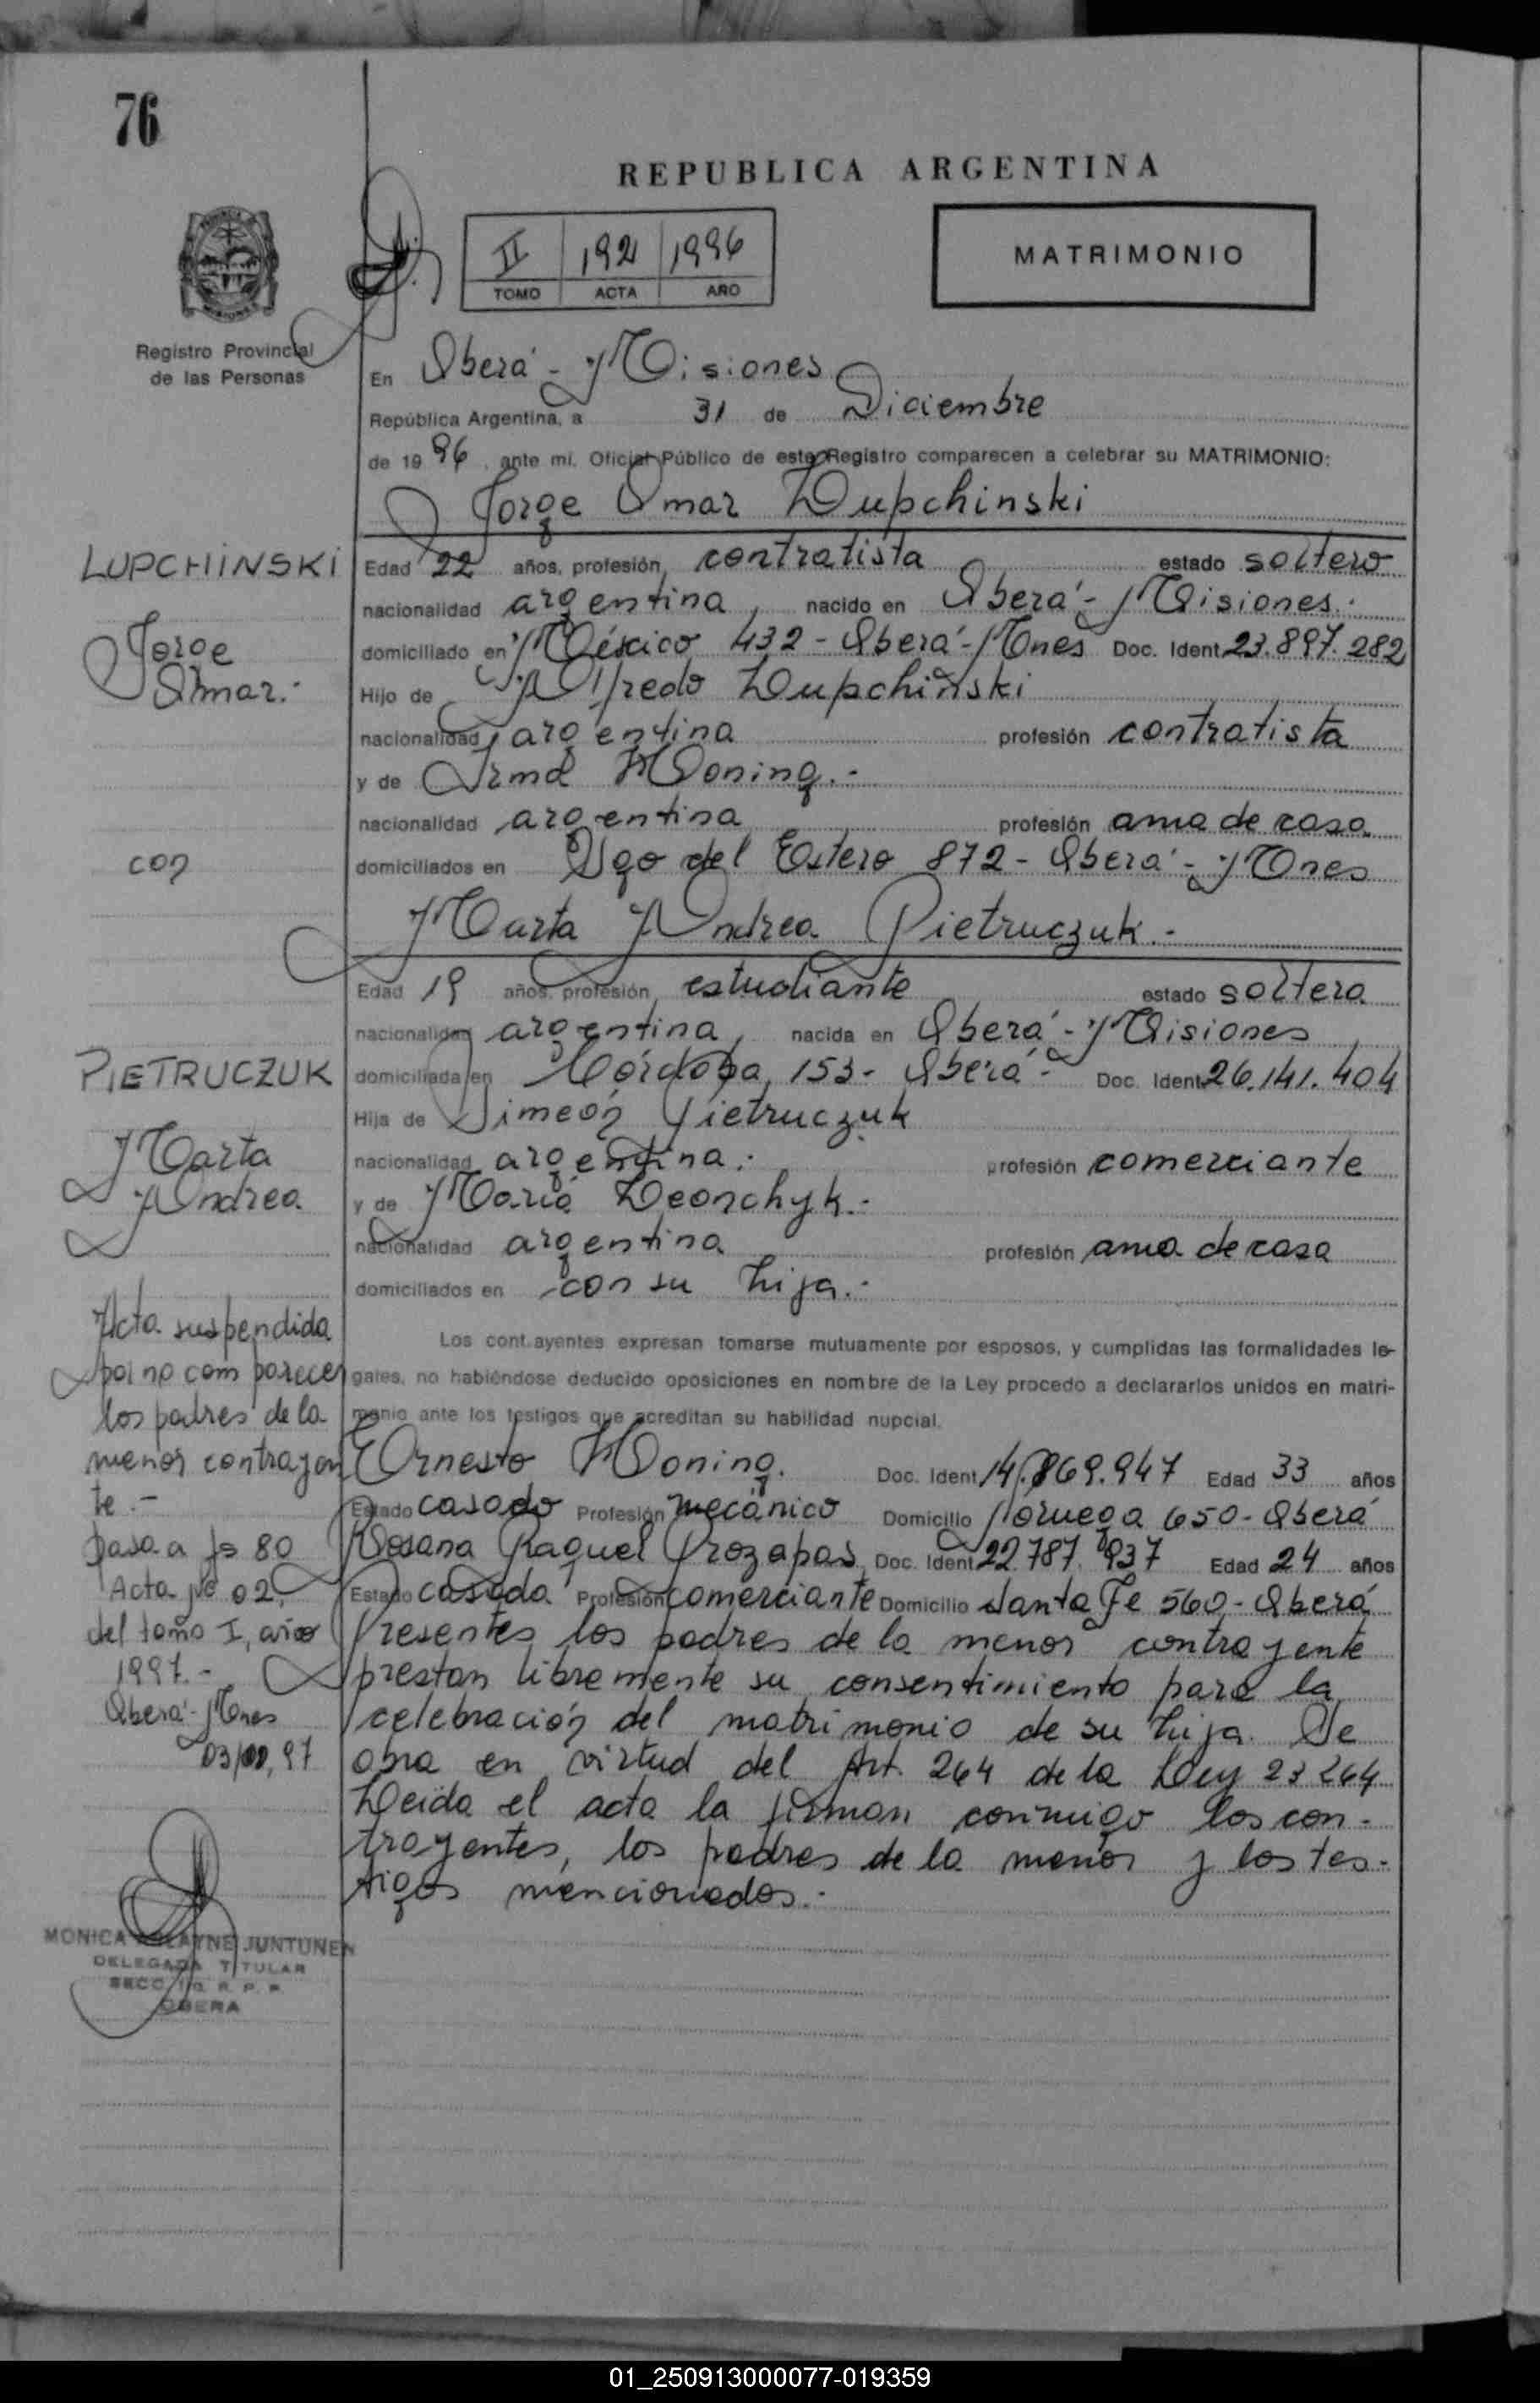 76
REPUBLICA ARGENTINA
II 192 1996
TOMO ACTA AÑO
MATRIMONIO
Registro Provincial
de las Personas
En Oberá - Misiones
República Argentina, a 31 de Diciembre
de 19 96, ante mi, Oficial Público de este Registro comparecen a celebrar su MATRIMONIO:
Jorge Omar Lupchinski
LUPCHINSKI
Jorge
Omar.-
Edad 22 años, profesión contratista estado soltero
nacionalidad argentina, nacido en Oberá - Misiones.
domiciliado en México 432 - Oberá - Mnes Doc. Ident. 23.897.282
Hijo de Alfredo Lupchinski
nacionalidad argentina profesión contratista
y de Irma Honing.-
nacionalidad argentina profesión ama de casa
con
domiciliados en Sgo del Estero 872 - Oberá - Mnes
Marta Andrea Pietruczuk.-
Edad 19 años, profesión, estudiante estado soltera
nacionalidad argentina, nacida en Oberá - Misiones
PIETRUCZUK
Marta
Andrea
domiciliada en Córdoba 153 - Oberá - Doc. Ident. 26.141.404
Hija de Simeón Pietruczuk
nacionalidad argentina. profesión comerciante
y de María Leonchyk.-
nacionalidad argentina profesión ama de casa
domiciliados en con su hija.-
Acta suspendida
por no comparecer
los padres de la
menor contrayen
te.-
Pasa a fs 80
Acta Nº 02,
del tomo I, año
1997.-
Oberá - Mnes
03/ 97
Los cont.ayentes expresan tomarse mutuamente por esposos, y cumplidas las formalidades le-
gales, no habiéndose deducido oposiciones en nombre de la Ley procedo a declararlos unidos en matri-
monio ante los testigos que acreditan su habilidad nupcial.
Ernesto Honing. Doc. Ident 14.869.947 Edad 33 años
Estado casado Profesión mecánico Domicilio Noruega 650 - Oberá
Rosana Raquel Prozapas, Doc. Ident 22.787.937 Edad 24 años
Estado casada Profesión comerciante Domicilio Santa Fe 560 - Oberá
Presentes los padres de la menor contrayente
prestan libremente su consentimiento para la
celebración del matrimonio de su hija. Se
obra en virtud del Art. 264 de la Ley 23264
Leída el acta la firman conmigo los con-
trayentes, los padres de la menor y los tes-
tigos mencionados.-
MONICA JUNTUNEN
DELEGADA TITULAR
SECC. R. P. P.
OBERA
01_250913000077-019359